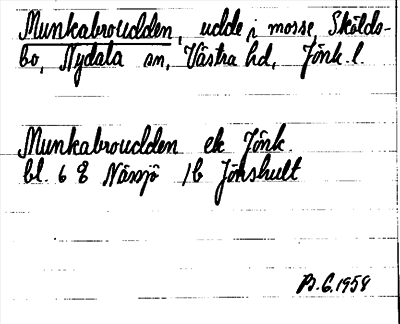 Munkabroudden, udde i mosse, Skölds-
bo, Nydala sn, Västra hd, Jönk. l.
Munkabroudden ek Jönk.
bl. 6 E Nässjö 1b Jönshult
B.G. 1958